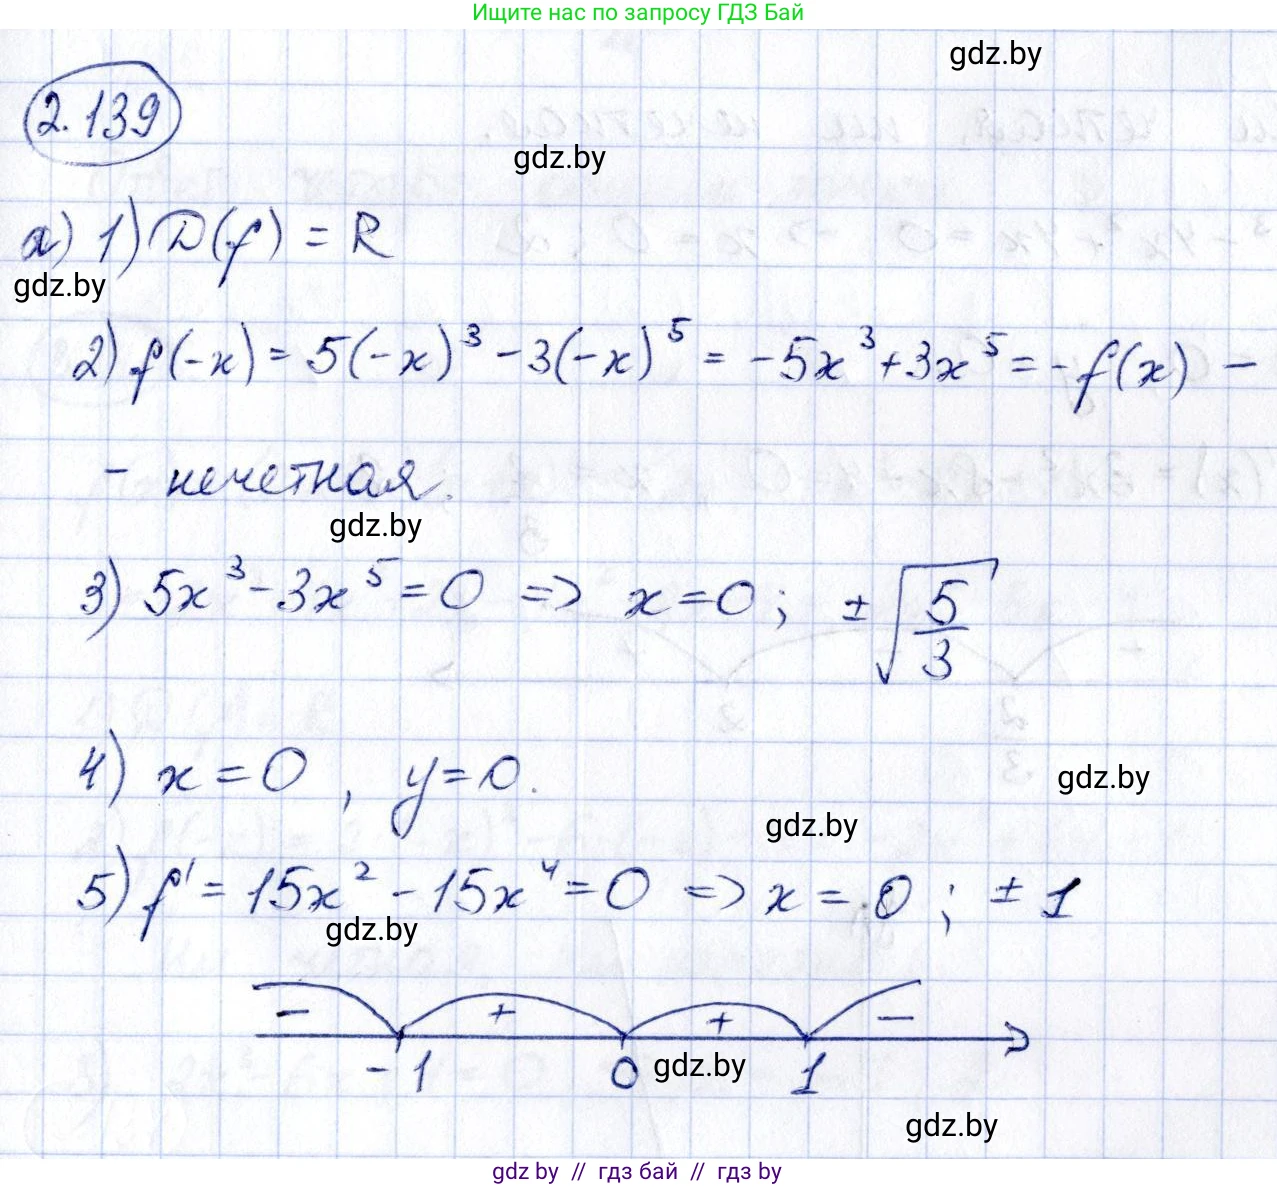 Ищите нас по запросу ГДЗ Бай
gdz.by
2.139
gdz.by
а) 1) D(f) = R
gdz.by
2) f(-x) = 5(-x)³ - 3(-x)⁵ = -5x³ + 3x⁵ = -f(x) -
- нечетная.
gdz.by
3) 5x³ - 3x⁵ = 0 => x = 0; ±√(5/3)
4) x = 0, y = 0.
gdz.by
gdz.by
5) f' = 15x² - 15x⁴ = 0 => x = 0; ± 1
gdz.by
- + + -
-1 0 1
gdz.by
gdz.by
gdz.by // гдз бай // гдз by